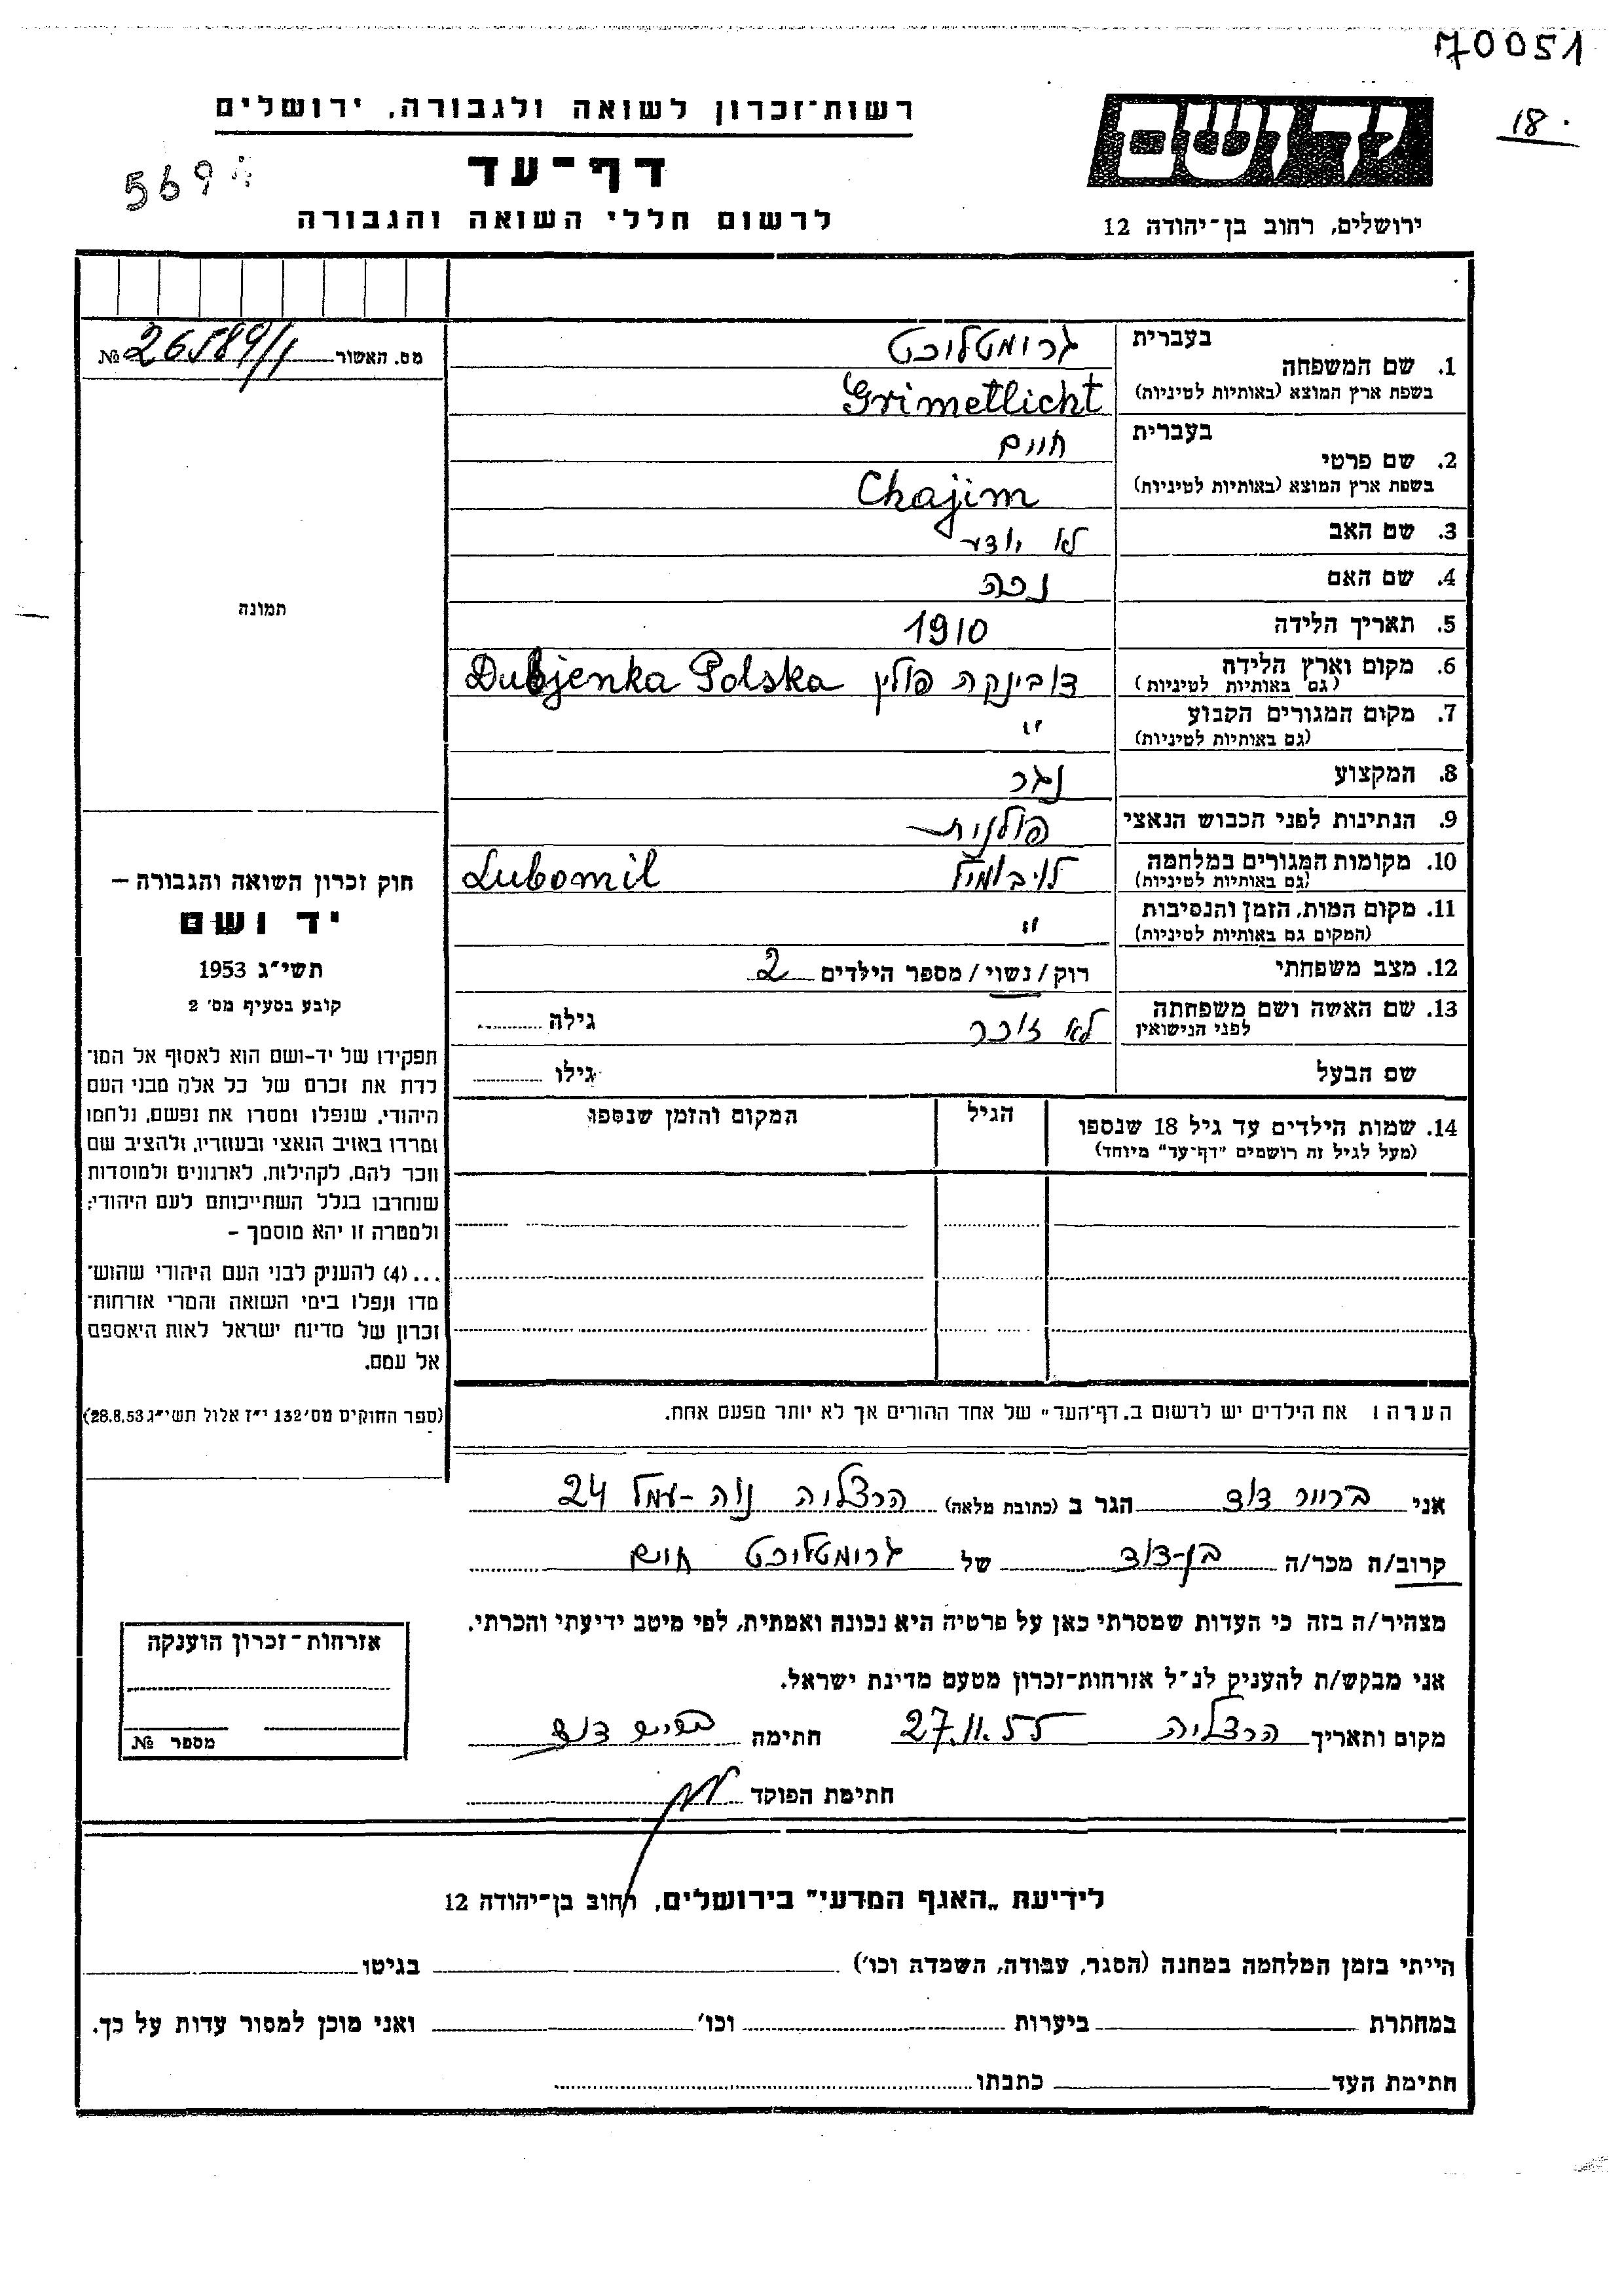 70051
18.
רשות־זכרון לשואה ולגבורה, ירושלים
דף־עד
לרשום חללי השואה והגבורה
569
יד ושם
ירושלים, רחוב בן־יהודה 12
מס. האשור № 26589/1
תמונה
1. שם המשפחה
בעברית גרומטליכט
בשפת ארץ המוצא (באותיות לטיניות) Grimetlicht
2. שם פרטי
בעברית חיים
בשפת ארץ המוצא (באותיות לטיניות) Chajim
3. שם האב לא יודע
4. שם האם נכה
5. תאריך הלידה 1910
6. מקום וארץ הלידה דובינקה פולין Dubjenka Polska
(גם באותיות לטיניות)
7. מקום המגורים הקבוע "
(גם באותיות לטיניות)
8. המקצוע נגר
9. הנתינות לפני הכבוש הנאצי פולנית
10. מקומות המגורים במלחמה לויבומיל Lubomil
(גם באותיות לטיניות)
11. מקום המות, הזמן והנסיבות "
(המקום גם באותיות לטיניות)
12. מצב משפחתי רוק/נשוי/מספר הילדים 2
13. שם האשה ושם משפחתה לא זוכר גילה
לפני הנישואין
שם הבעל גילו
14. שמות הילדים עד גיל 18 שנספו הגיל המקום והזמן שנספו
(מעל לגיל זה רושמים "דף־עד" מיוחד)
חוק זכרון השואה והגבורה —
יד ושם
תשי"ג 1953
קובע בסעיף מס' 2
תפקידו של יד-ושם הוא לאסוף אל המו־
לדת את זכרם של כל אלה מבני העם
היהודי, שנפלו ומסרו את נפשם, נלחמו
ומרדו באויב הנאצי ובעוזריו, ולהציב שם
וזכר להם, לקהילות, לארגונים ולמוסדות
שנחרבו בגלל השתייכותם לעם היהודי;
ולמטרה זו יהא מוסמך —
...(4) להעניק לבני העם היהודי שהוש־
מדו ונפלו בימי השואה והמרי אזרחות־
זכרון של מדינת ישראל לאות היאספם
אל עמם.
(ספר החוקים מס' 132 י"ז אלול תשי"ג 28.8.53)
הערה: את הילדים יש לרשום ב„דף־העד" של אחד ההורים אך לא יותר מפעם אחת.
אני ברייר דוד הגר ב (כתובת מלאה) הרצליה נוה-עמל 24
קרוב/ה מכר/ה בן-דוד של גרומטליכט חיים
מצהיר/ה בזה כי העדות שמסרתי כאן על פרטיה היא נכונה ואמתית, לפי מיטב ידיעתי והכרתי.
אני מבקש/ת להעניק לנ"ל אזרחות-זכרון מטעם מדינת ישראל.
מקום ותאריך הרצליה 27.11.55 חתימה
חתימת הפוקד
אזרחות־זכרון הוענקה
מספר №
לידיעת „האגף המדעי" בירושלים, רחוב בן־יהודה 12
הייתי בזמן המלחמה במחנה (הסגר, עבודה, השמדה וכו') בגיטו
במחתרת ביערות וכו' ואני מוכן למסור עדות על כך.
חתימת העד כתבתו